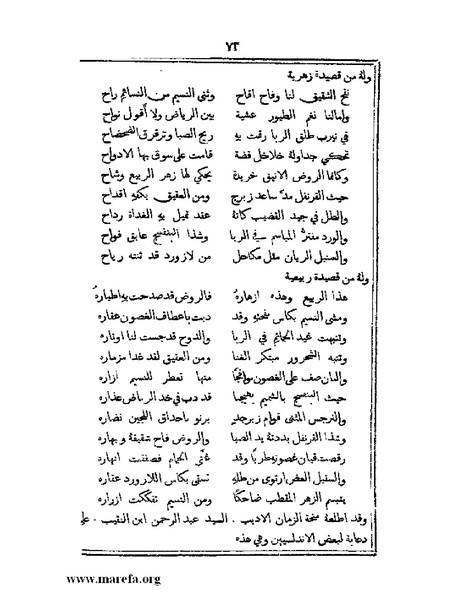 ٧٣
وله من قصيدة زهرية
نفح الشقيق لنا وفاح اقاح وثنى النسيم من النسائم راح
وامالنا نغم الطيور عشية بين الرياض ولا أقول نواح
في نيرب طلق الربا رقت به ريح الصبا وترقرق الضحضاح
تحكي جداوله خلاخل فضة قامت على سوق بها الادواح
وكانما الروض الانيق خريدة يحكي لها زهر الربيع وشاح
حيث القرنفل مدّ ساعد زبرج ومن العقيق بكفه اقداح
والطل في جيد القضيب كانه عقد تميل به الغداة رداح
والورد مفترّ المباسم في الربا وشذا البنفسج عابق فواح
والسنبل الريان مثل مكاحل من لازورد قد ثنته رياح
وله من قصيدة ربيعية
هذا الربيع وهذه ازهاره فالروض قد صدحت به اطياره
ومشى النسيم بكاس وقد دبت باعطاف الغصون عقاره
وتنبهت غيد الحمائم في الربا والدوح قد جست لنا اوتاره
وتنبه الشحرور مبتكر الغنا ومن العقيق لقد غدا مزماره
والبان صف على الغصون منها تعطر للنسيم ازاره
حيث البنفسج بالشميم قد دب في خد الرياض عذاره
والنرجس المثنى قوام زبرجد يرنو باحداق اللجين نضاره
وشذا القرنفل بددته يد الصبا والروض فاح شقيقه وبهاره
رقصت قيان غصونه طربا وقد غنّى الحمام فصفقت انهاره
والسنبل الغض ارتوى من طله تسقى بكاس اللازورد عقاره
يتبسم الزهر المقطب ضاحكا ومن النسيم تفككت ازراره
وقد اطلعه منحة الزمان الاديب . السيد عبد الرحمن ابن النقيب . على
دعابة لبعض الاندلسيين وهي هذه
www.marefa.org